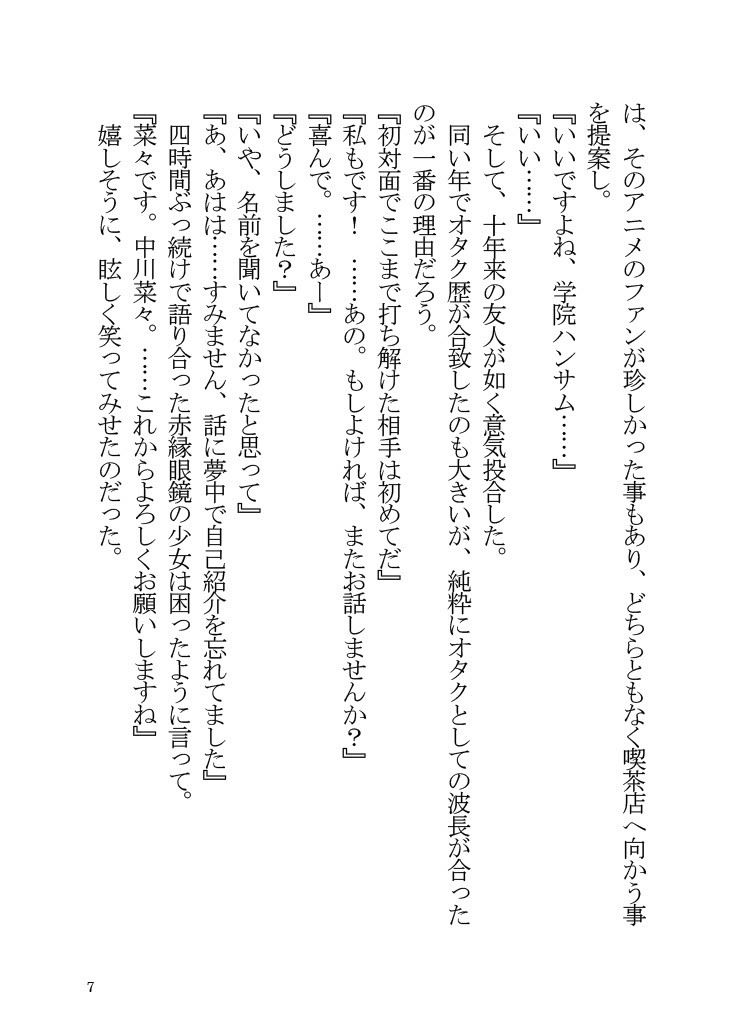 は、そのアニメのファンが珍しかった事もあり、どちらともなく喫茶店へ向かう事
を提案し。
『いいですよね、学院ハンサム……』
『いい……』
　そして、十年来の友人が如く意気投合した。
　同い年でオタク歴が合致したのも大きいが、純粋にオタクとしての波長が合った
のが一番の理由だろう。
『初対面でここまで打ち解けた相手は初めてだ』
『私もです！　……あの。もしよければ、またお話しませんか？』
『喜んで。……あー』
『どうしました？』
『いや、名前を聞いてなかったと思って』
『あ、あはは……すみません、話に夢中で自己紹介を忘れてました』
　四時間ぶっ続けで語り合った赤縁眼鏡の少女は困ったように言って。
『菜々です。中川菜々。……これからよろしくお願いしますね』
　嬉しそうに、眩しく笑ってみせたのだった。
7